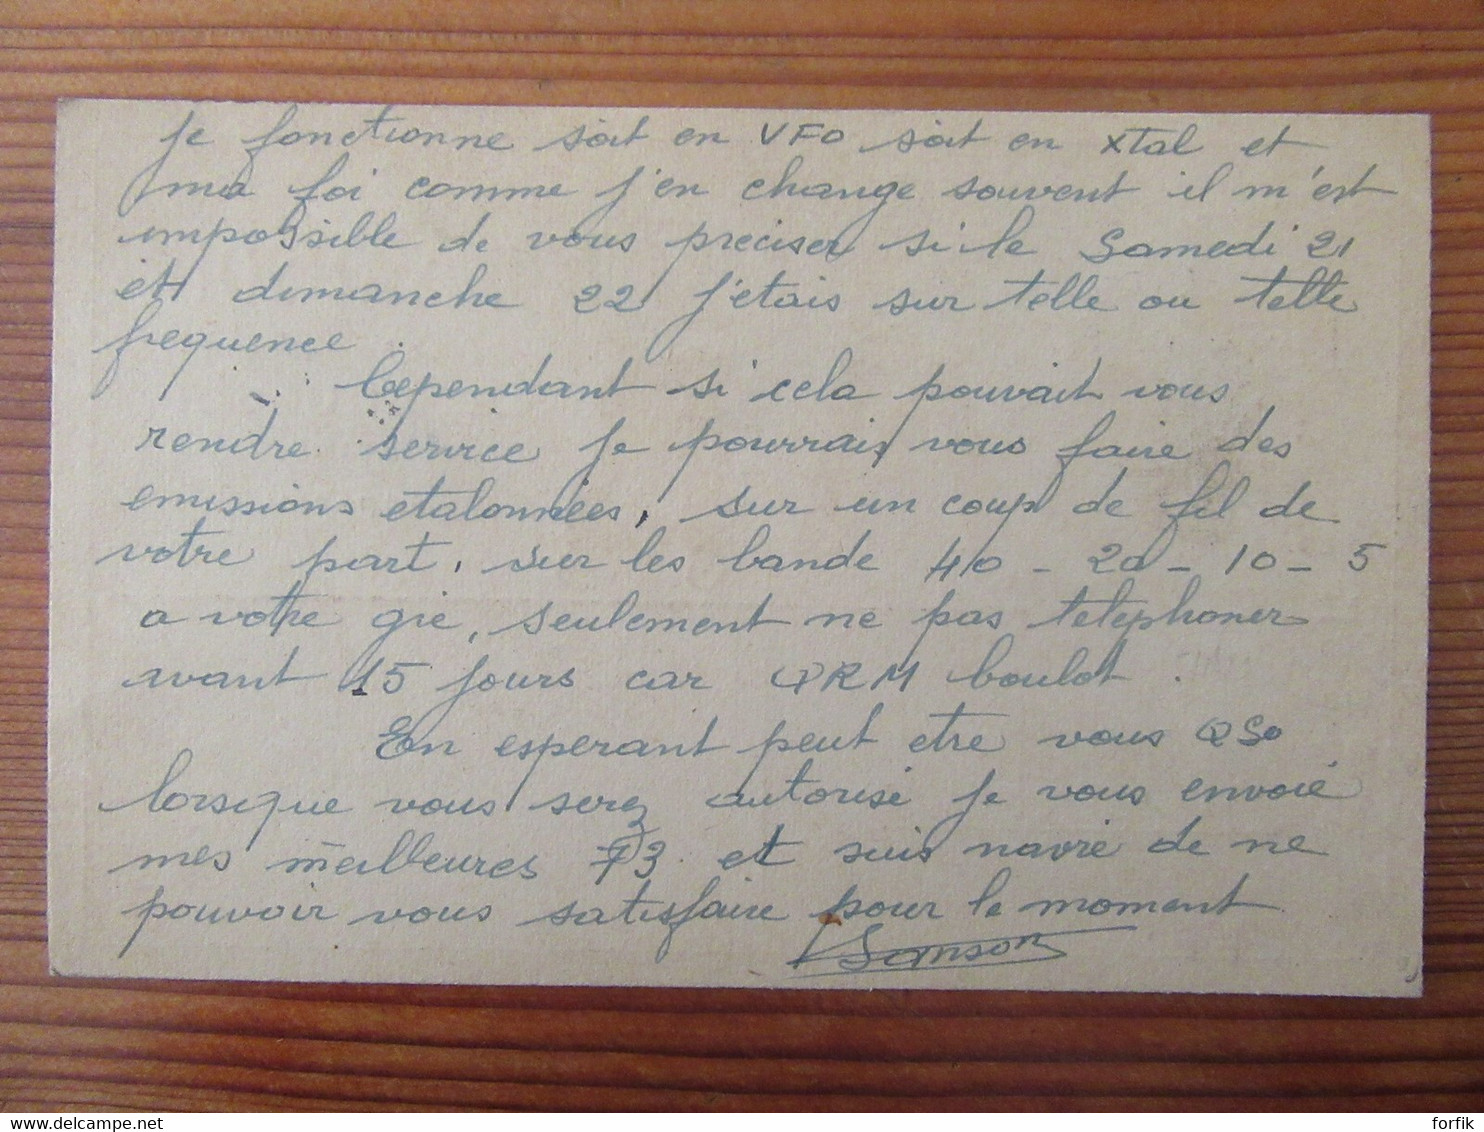 Je fonctionne soit en VFO soit en Xtal et
ma foi comme j'en change souvent il m'est
impossible de vous preciser si le Samedi 21
et dimanche 22 j'etais sur telle ou telle
frequence.
Cependant si cela pouvait vous
rendre service je pourrais vous faire des
emissions etalonnées, sur un coup de fil de
votre part, sur les bande 40 - 20 - 10 - 5
a votre gre, seulement ne pas telephoner
avant 15 jours car QRM boulot.
En esperant peut etre vous QSO
lorsque vous serez autorisé je vous envoie
mes meilleures 73 et suis navré de ne
pouvoir vous satisfaire pour le moment
Samson
delcampe.net
forfik